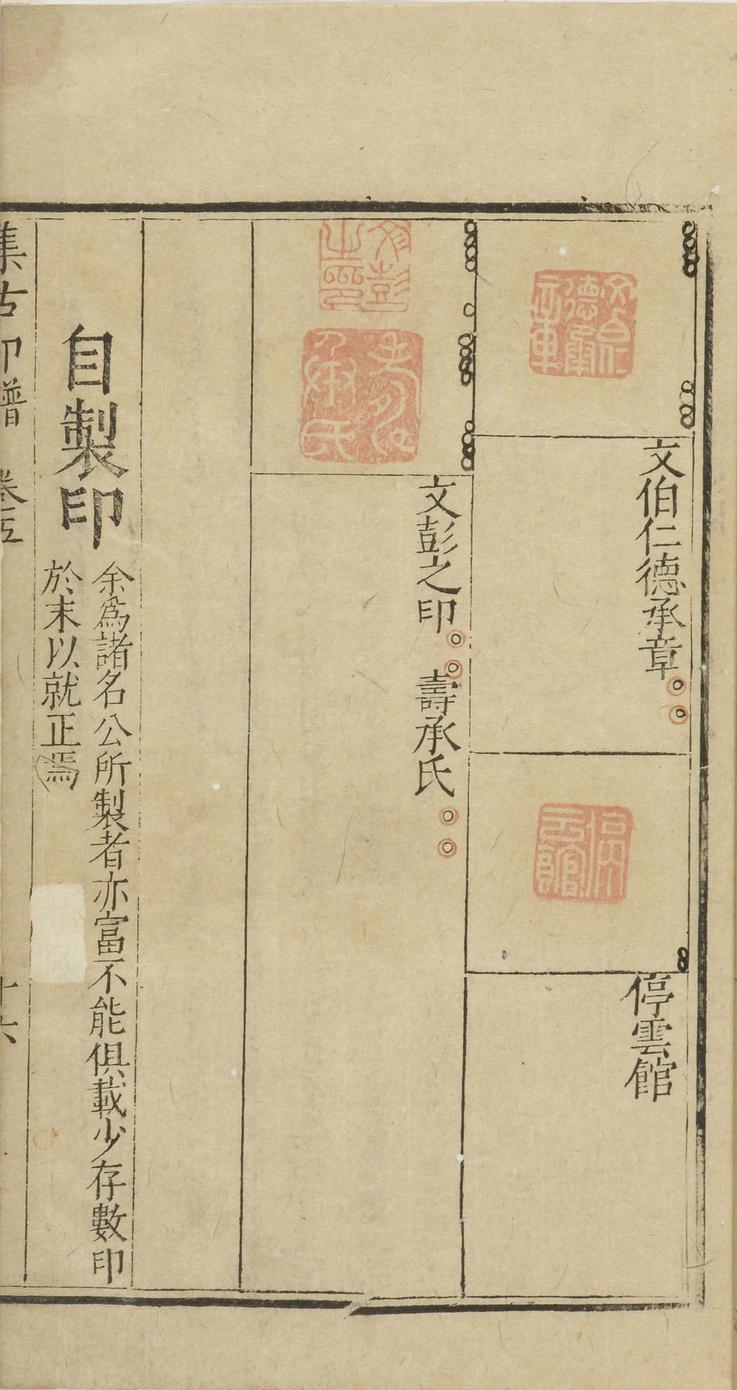 文伯仁德承章
停雲館
文彭之印
壽承氏
自製印
余爲諸名公所製者亦富不能俱載少存數印
於末以就正焉
集古印譜 卷五
十六